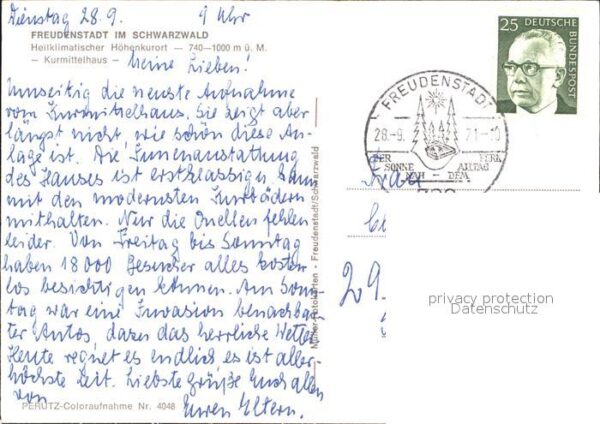 Dienstag 28.9. 9 Uhr
FREUDENSTADT IM SCHWARZWALD
Heilklimatischer Höhenkurort — 740–1000 m ü. M.
— Kurmittelhaus —
Meine Lieben!
Umseitig die neuste Aufnahme
vom Kurmittelhaus. Sie zeigt aber
längst nicht, wie schön diese An-
lage ist. Die Innenaustattung
des Hauses ist erstklassig u. kann
mit den modernsten Kurbädern
mithalten. Nur die Quellen fehlen
leider. Von Freitag bis Sonntag
haben 18000 Besucher alles kosten-
los besichtigen können. Am Sonn-
tag war eine Invasion benachbar-
ter Autos, dazu das herrliche Wetter.
Heute regnet es endlich, es ist aller-
höchste Zeit. Liebste Grüße Euch allen
von
Euren Eltern.
PERUTZ-Coloraufnahme Nr. 4048
Müller-Fotokarten - Freudenstadt/Schwarzwald
25 DEUTSCHE
BUNDESPOST
FREUDENSTADT
28.-9. 71-10
DER SONNE NAH – DEM ALLTAG FERN
Frau
29.
privacy protection
Datenschutz